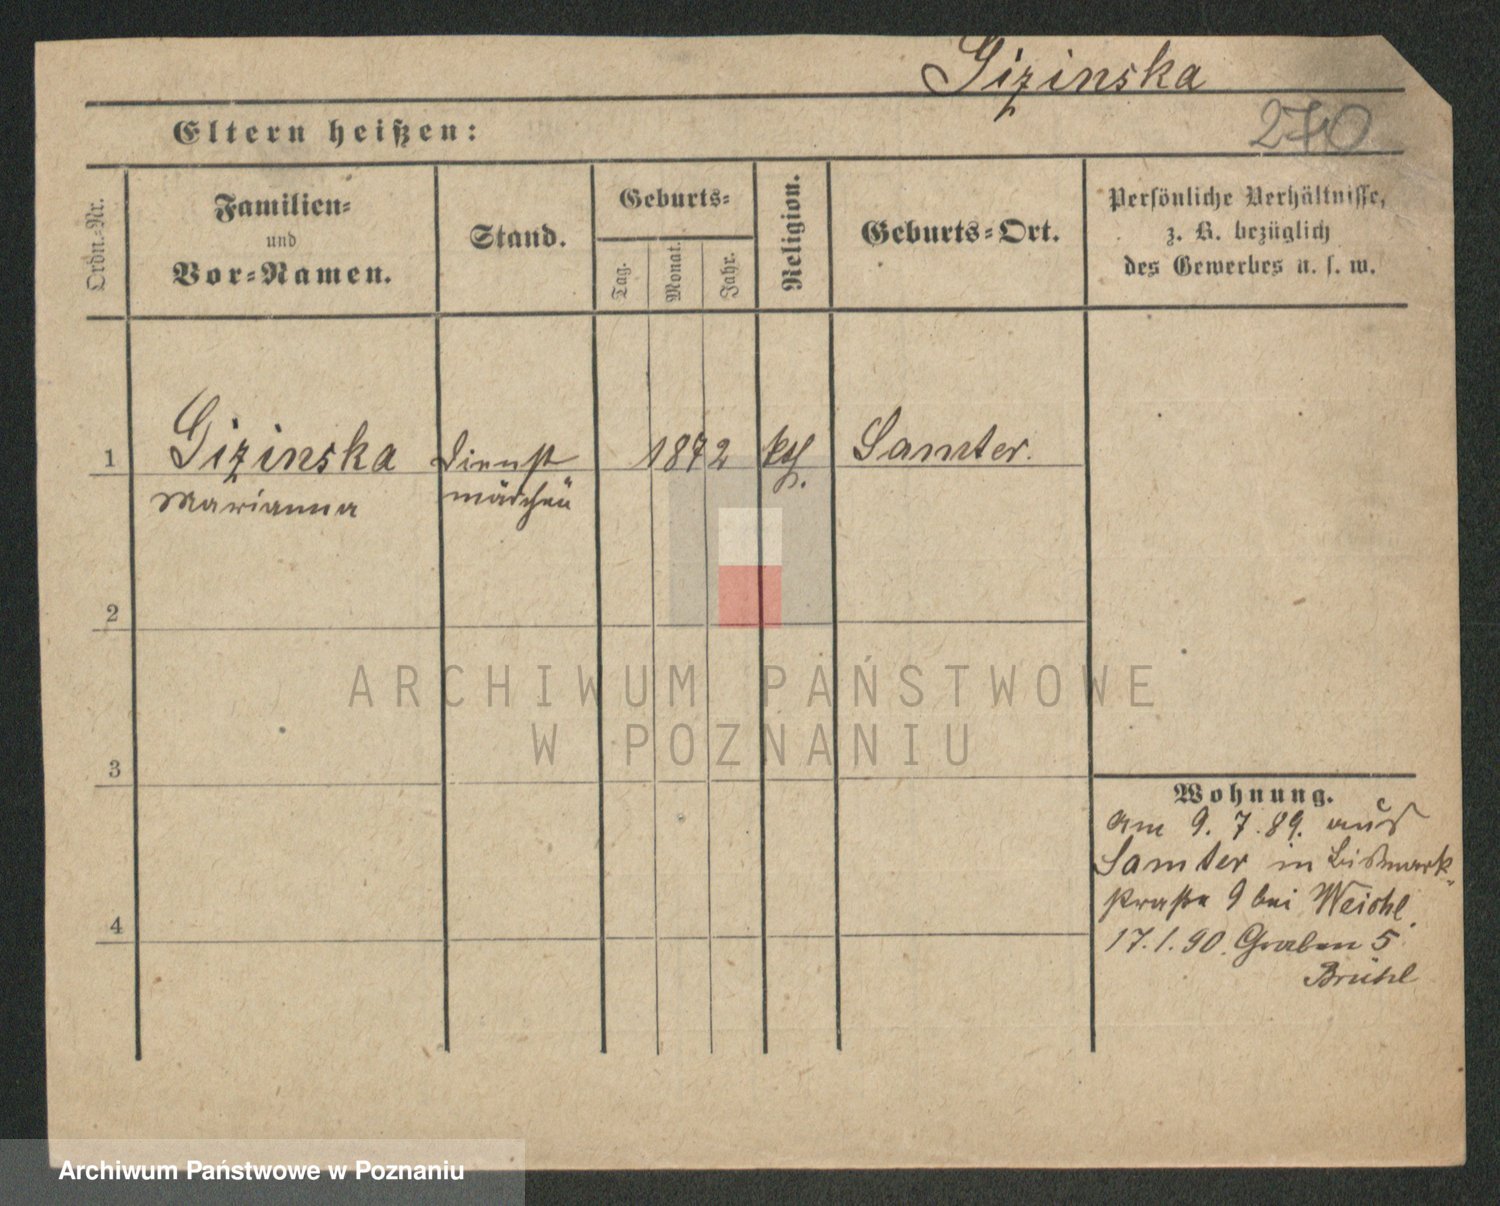 Gizinska
270
Eltern heißen:
Ordn.-Nr.
Familien-
und
Vor-Namen.
Stand.
Geburts-
Tag.
Monat.
Jahr.
Religion.
Geburts-Ort.
Persönliche Verhältnisse,
z. B. bezüglich
des Gewerbes u. s. w.
1
Gizinska
Marianna
Dienst
mädchen
1872
kth.
Samter.
2
3
4
ARCHIWUM PAŃSTWOWE
W POZNANIU
Wohnung.
am 9. 7. 89. aus
Samter in Bismark-
straße 9 bei Weichl.
17. 1. 90. Graben 5
Brühl
Archiwum Państwowe w Poznaniu